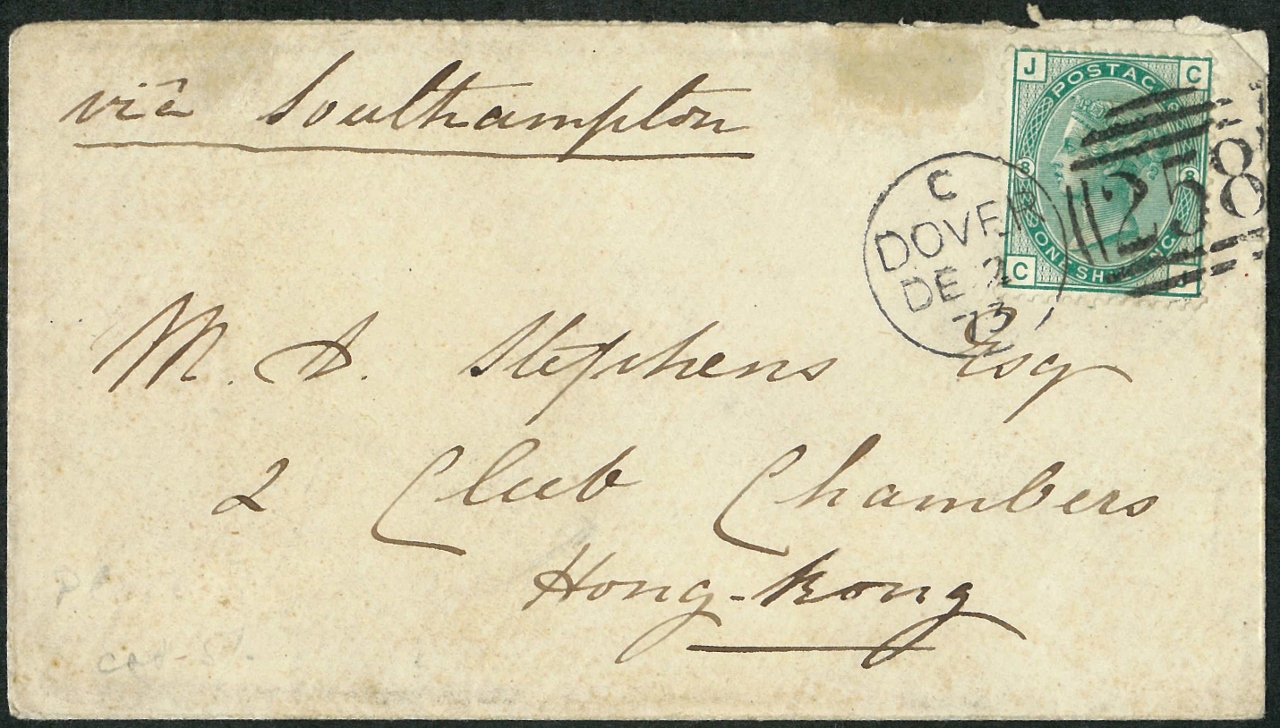 viâ Southampton
J POSTAGE C
8 8
C ONE SHILLING J
258
C
DOVER
DE 2
73
M. A. Stephens Esq
2 Club Chambers
Hong-Kong